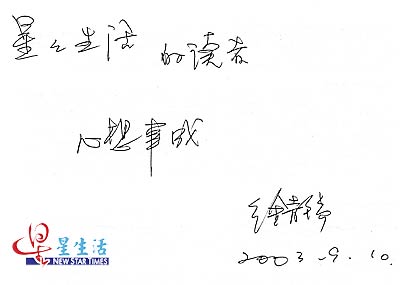 星星生活 的读者
心想事成
2003.9.10.
星星生活
NEW STAR TIMES